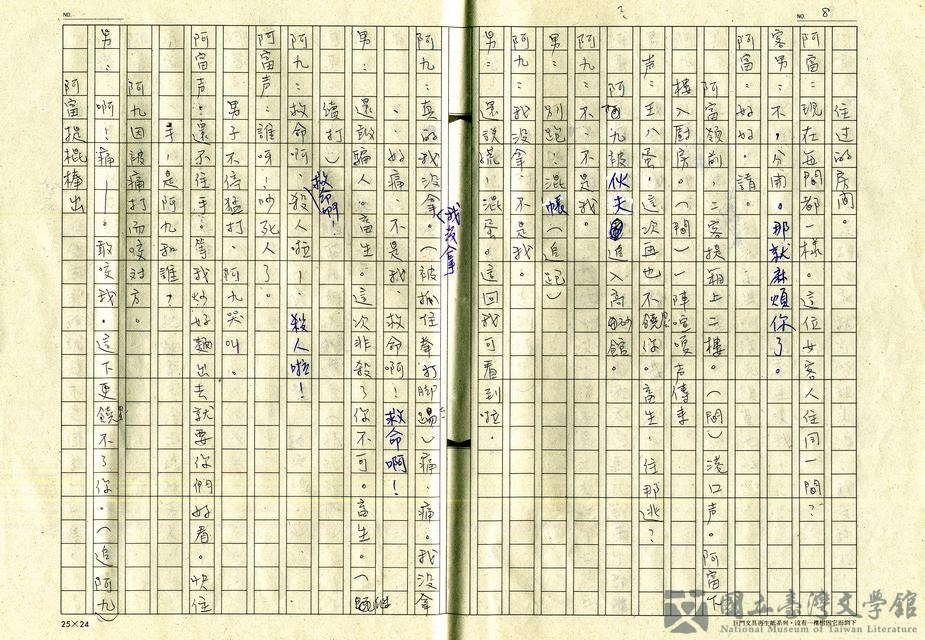 NO. 8
住过的房間。
阿富：現在每間都一樣。這位女客人住同一間？
客男：不，分開。那就麻煩你了。
阿富：好好，請。
阿富領前，二客提箱上二樓。（間）港口声。阿富下
樓入厨房。（間）一陣喧嚷声傳來
声：王八蛋，這次再也不饒你。畜生，往那逃？
阿九被伙夫追入高砂館。
阿九：不、不是我。
男：別跑！混帳（追跑）
阿九：我没拿，不是我。
男：還說謊！混蛋。這回我可看到啦。
阿九：真的我没拿，我没拿（被抓住拳打脚踢）痛、痛。我没拿
、好痛、不是我、救命啊！救命啊！
男：還敢騙人。畜生。這次非殺了你不可。畜生。（繼
續打）
阿九：救命啊，救命啊！殺人啦！殺人啦！
阿富声：誰呀！吵死人了。
男子不停猛打，阿九哭叫。
阿富声：還不住手。等我炒好麵出去就要你們好看。快住
手！是阿九和誰？
阿九因被痛打而咬对方。
男：啊！痛——。敢咬我。這下更饒不了你。（追阿九）
阿富提棍棒出
NO.
25×24
巨門文具再生紙系列，沒有一棵樹因它而倒下
國立臺灣文學館
National Museum of Taiwan Literature